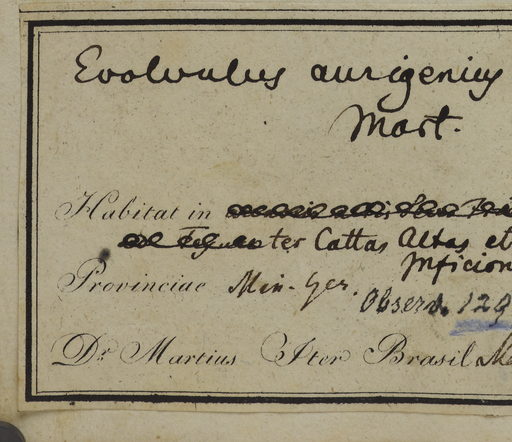 Evolvulus aurigenius
Mart.
Habitat in
inter Cattas Altas et
Inficion
Provinciae Min. Ger.
Observ. 129
Dr. Martius Iter Brasil